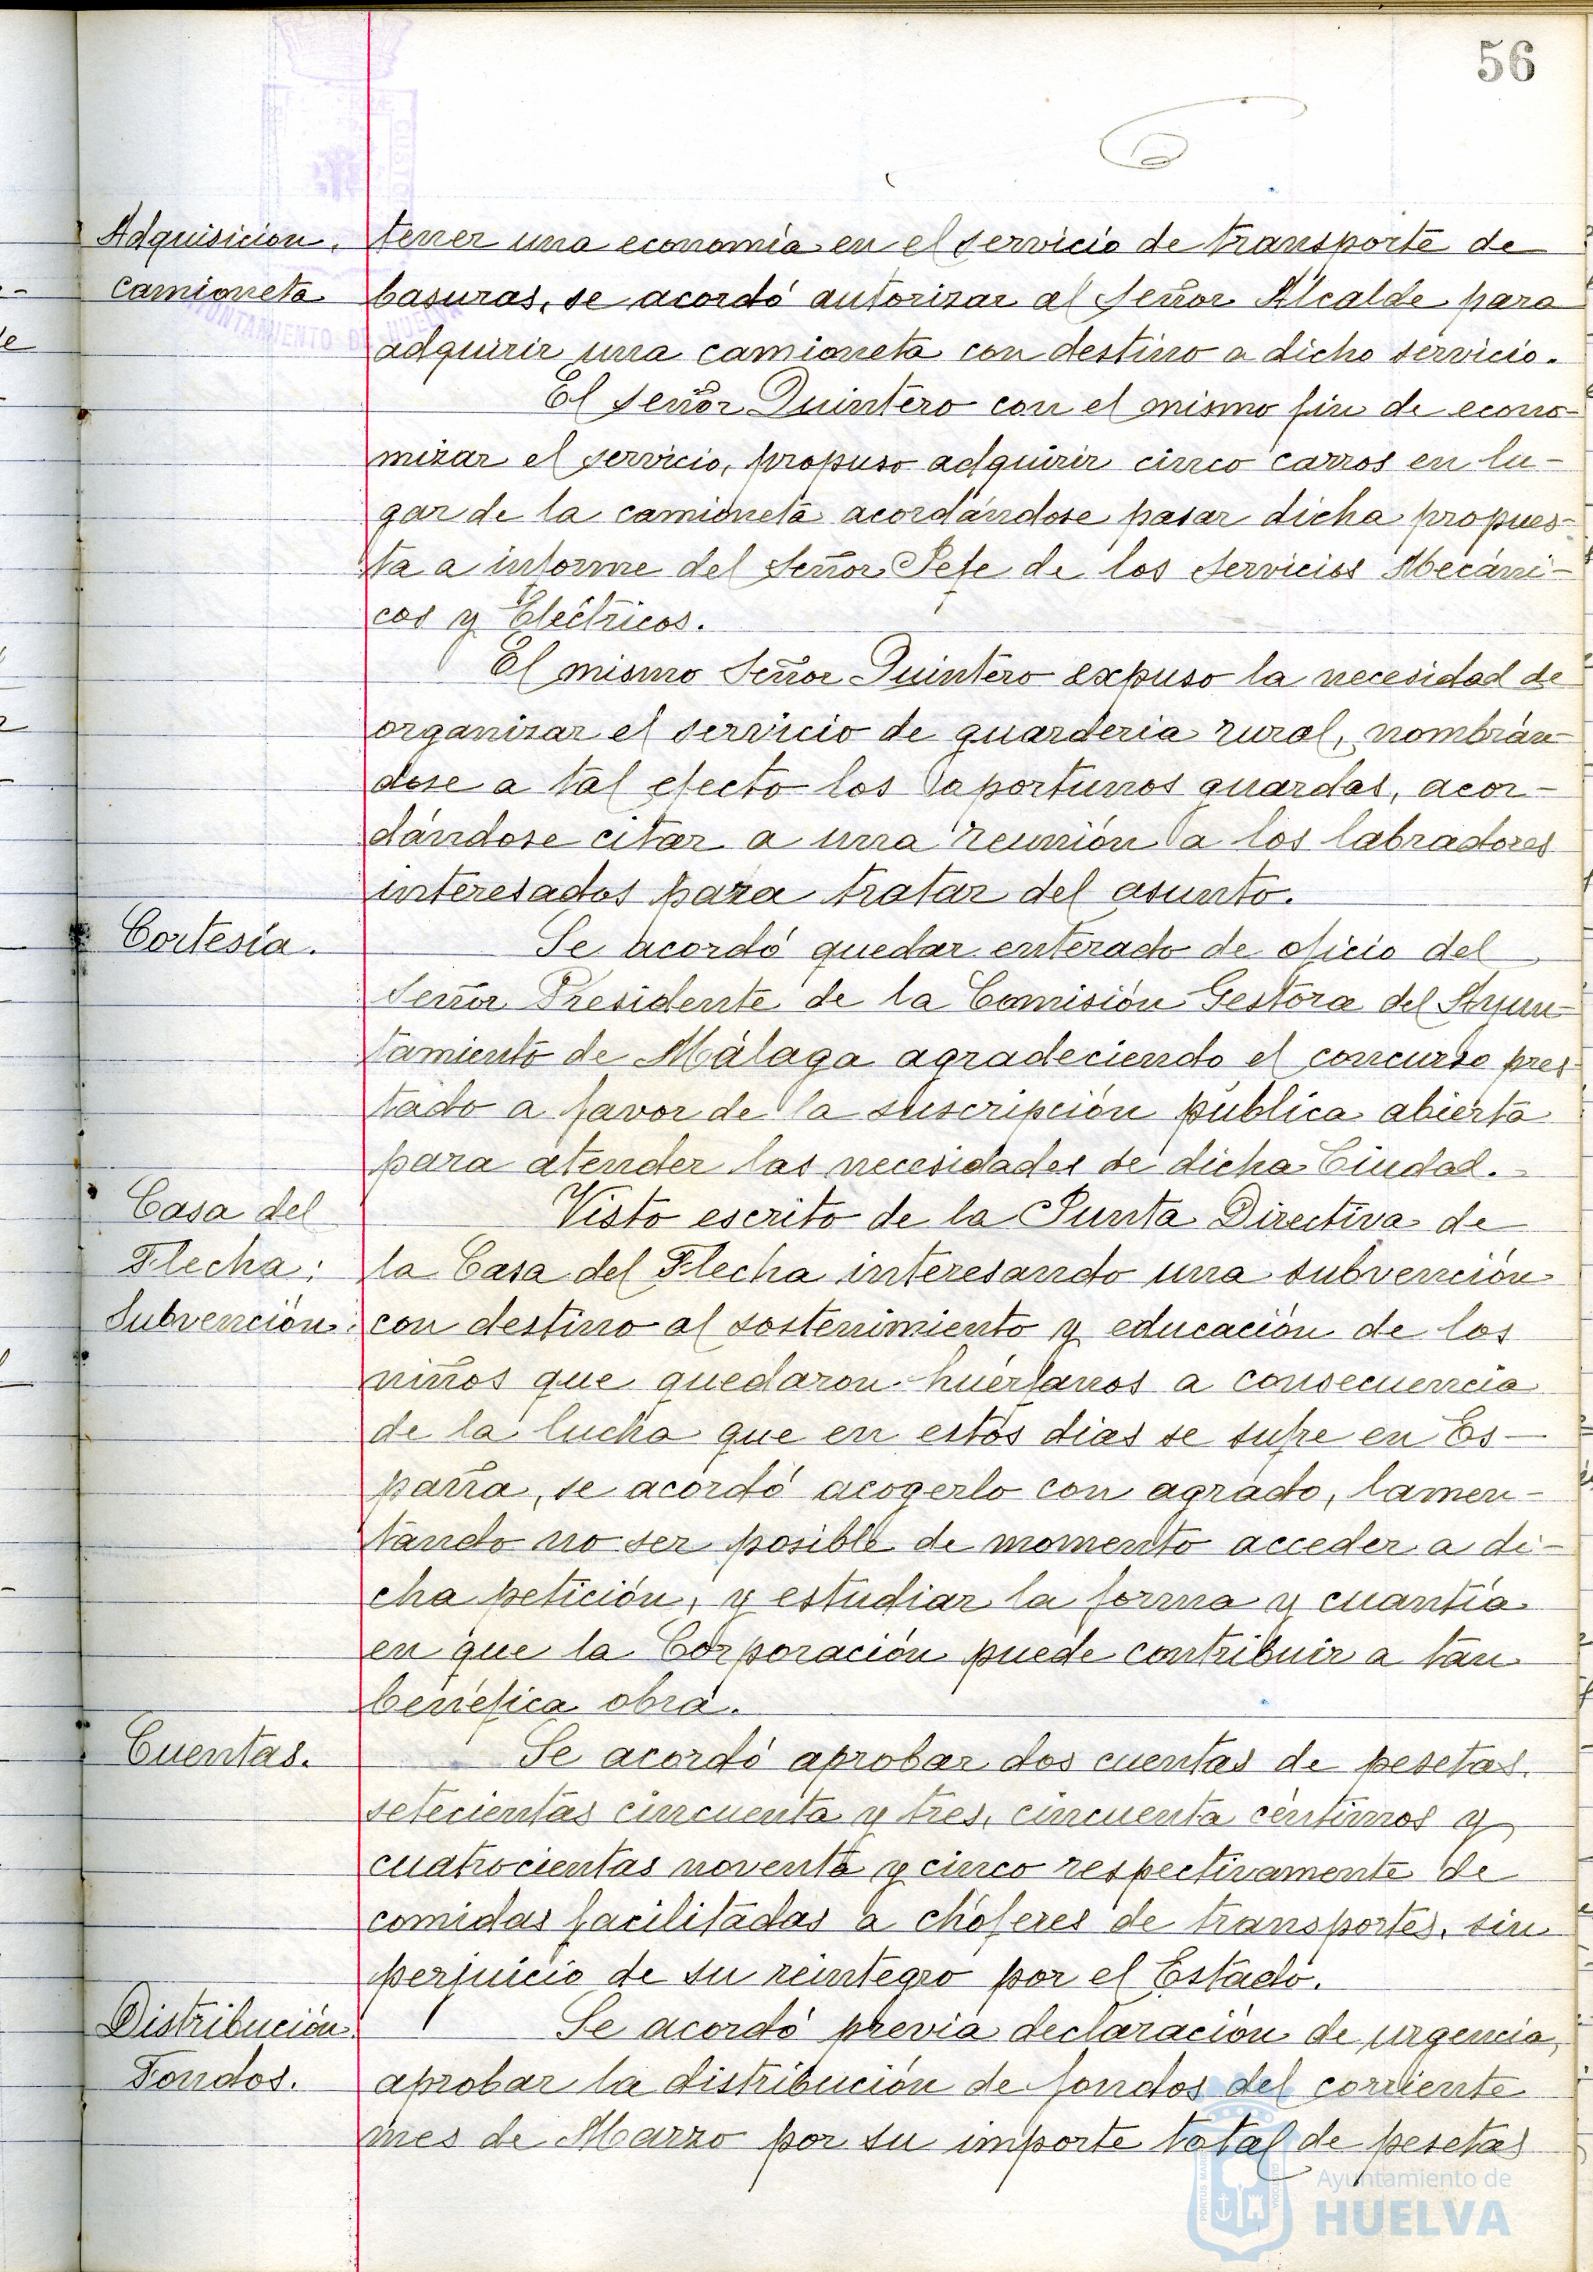 56
Adquisicion.
Camioneta
tener una economía en el servicio de transporte de
basuras, se acordó autorizar al Señor Alcalde para
adquirir una camioneta con destino a dicho servicio.
El Señor Quintero con el mismo fin de econo-
mizar el servicio, propuso adquirir cinco carros en lu-
gar de la camioneta acordándose pasar dicha propues-
ta a informe del Señor Jefe de los Servicios Mecáni-
cos y Eléctricos.
El mismo Señor Quintero expuso la necesidad de
organizar el servicio de guarderia rural, nombrán-
dose a tal efecto los oportunos guardas, acor-
dándose citar a una reunión a los labradores
interesados para tratar del asunto.
Cortesía.
Se acordó quedar enterado de oficio del
Señor Presidente de la Comisión Gestora del Ayun-
tamiento de Málaga agradeciendo el concurso pres-
tado a favor de la suscripción pública abierta
para atender las necesidades de dicha Ciudad.
Casa del
Flecha:
Subvención:
Visto escrito de la Junta Directiva de
la Casa del Flecha interesando una subvención
con destino al sostenimiento y educación de los
niños que quedaron huérfanos a consecuencia
de la lucha que en estos dias se sufre en Es-
paña, se acordó acogerlo con agrado, lamen-
tando no ser posible de momento acceder a di-
cha petición, y estudiar la forma y cuantía
en que la Corporación puede contribuir a tan
benéfica obra.
Cuentas.
Se acordó aprobar dos cuentas de pesetas
setecientas cincuenta y tres, cincuenta céntimos y
cuatrocientas noventa y cinco respectivamente de
comidas facilitadas a chóferes de transportes, sin
perjuicio de su reintegro por el Estado.
Distribución
Fondos.
Se acordó previa declaración de urgencia,
aprobar la distribución de fondos del corriente
mes de Marzo por su importe total de pesetas
Ayuntamiento de
HUELVA